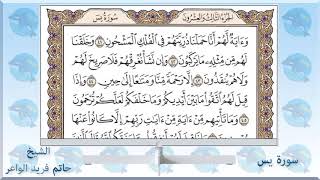 سُورَةُ يسٓ
الجُزْءُ الثَّالِثُ وَالعِشْرُونَ
وَءَايَةٌ لَّهُمْ أَنَّا حَمَلْنَا ذُرِّيَّتَهُمْ فِي ٱلْفُلْكِ ٱلْمَشْحُونِ ٤١ وَخَلَقْنَا
لَهُم مِّن مِّثْلِهِۦ مَا يَرْكَبُونَ ٤٢ وَإِن نَّشَأْ نُغْرِقْهُمْ فَلَا صَرِيخَ لَهُمْ
وَلَا هُمْ يُنقَذُونَ ٤٣ إِلَّا رَحْمَةً مِّنَّا وَمَتَٰعًا إِلَىٰ حِينٍ ٤٤ وَإِذَا
قِيلَ لَهُمُ ٱتَّقُوا۟ مَا بَيْنَ أَيْدِيكُمْ وَمَا خَلْفَكُمْ لَعَلَّكُمْ تُرْحَمُونَ ٤٥
وَمَا تَأْتِيهِم مِّنْ ءَايَةٍ مِّنْ ءَايَٰتِ رَبِّهِمْ إِلَّا كَانُوا۟ عَنْهَا
سورة يس
الشيخ
حاتم فريد الواعر